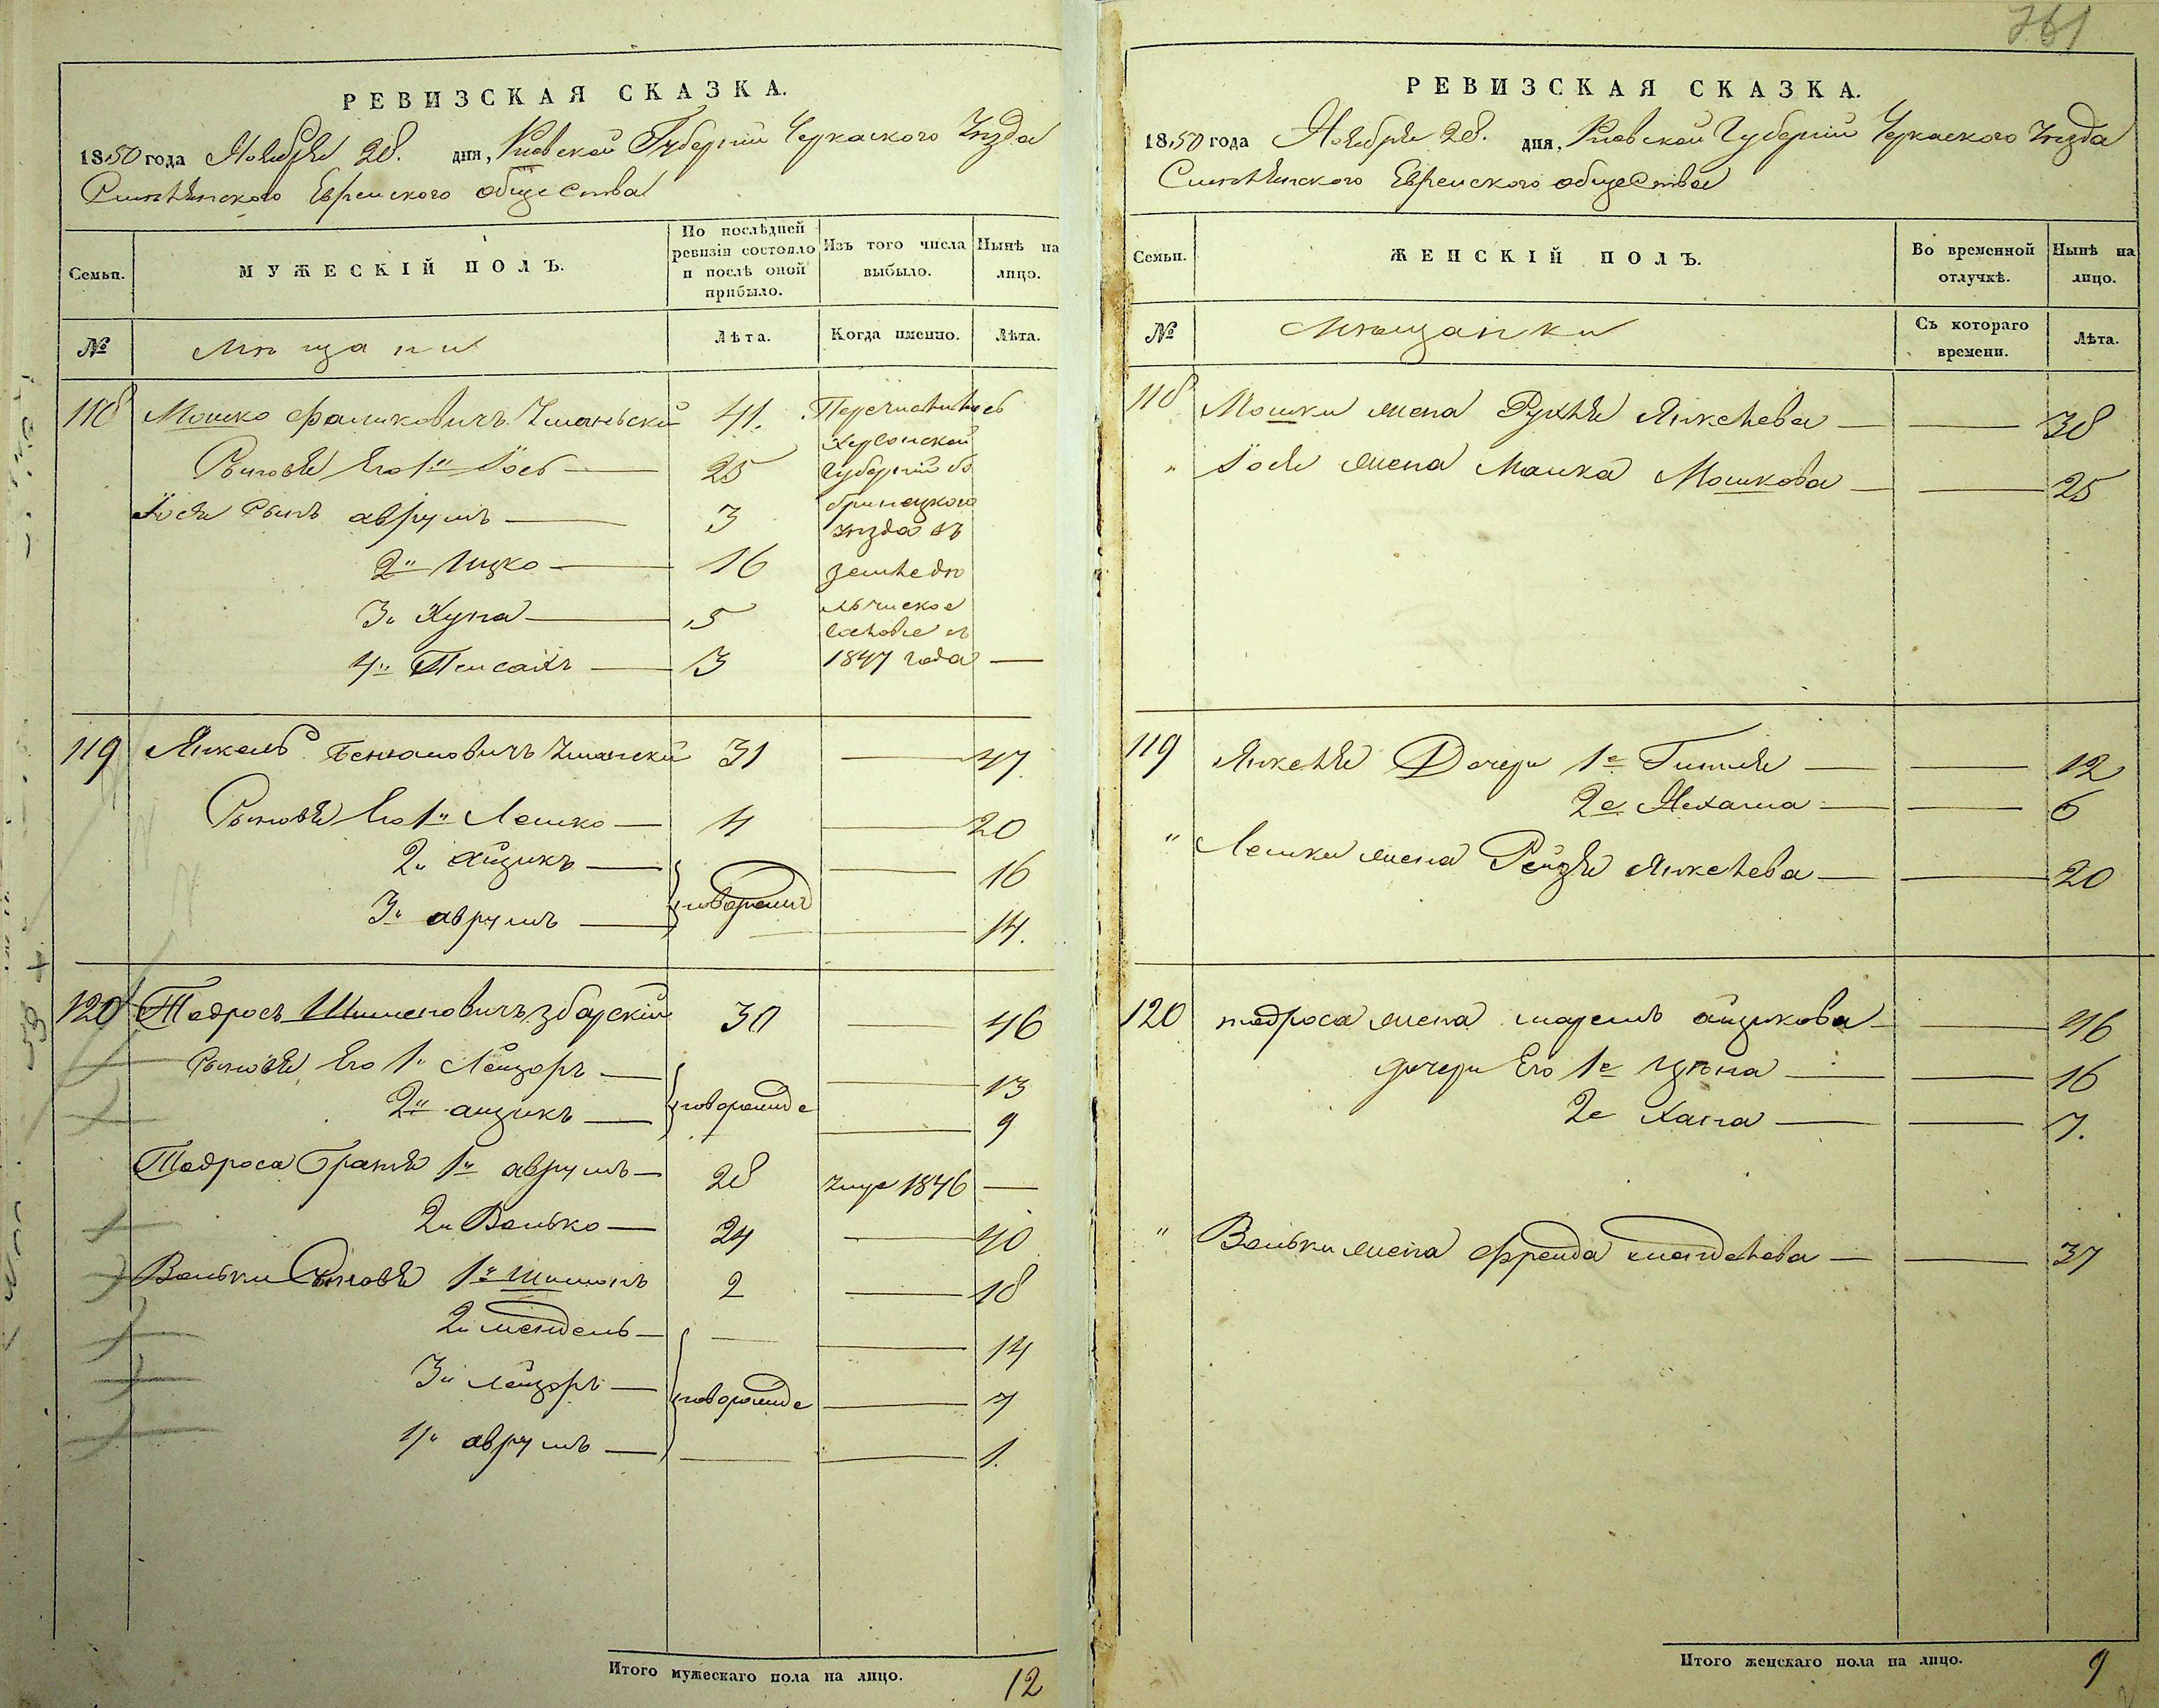 РЕВИЗСКАЯ СКАЗКА.
1850 года Ноября 28. дня, Киевской Губернии Черкаского Уезда
Смелянского Еврейского общества
Семьи.
МУЖЕСКІЙ ПОЛЪ.
По послѣдней ревизіи состояло и послѣ оной прибыло.
Изъ того числа выбыло.
Нынѣ на лицо.
№ Мѣщани
Лѣта. Когда именно. Лѣта.
118 Мошко Фаликовичъ Уманьский 41. Перечислились
Херсонской
Сыновя Его 1й Іось 25 Губернии бо
Іося Сынъ аврумъ 3 бринецкого
уезда въ
2й Ицко 16 земледе
3й Хуна 5 льческое
сословие съ
4й Пейсахъ 3 1847 года
119 Янкель Беньоминовичъ Уманский 31 47.
Сыновя Его 1й Лешко 4 20
2й айзикъ 16
3й аврумъ новорожд 14.
120 Тодросъ Шимоновичъ збарский 30 46
Сыновя Его 1й Лейзоръ 13
2й айзикъ новорожде 9
Тодроса Братя 1й аврумъ 28 умре 1846
2й Волько 24 40
Вольки Сыновя 1й Шимонъ 2 18
2й мендель 14
3й лейзоръ новорожде 7
4й аврумъ 1.
Итого мужескаго пола на лицо. 12
761
РЕВИЗСКАЯ СКАЗКА.
1850 года Ноября 28. дня, Киевской Губернии Черкаского Уезда
Смелянского Еврейского общества
Семьи.
ЖЕНСКІЙ ПОЛЪ.
Во временной отлучкѣ.
Нынѣ на лицо.
№ Мѣщанки
Съ котораго времени. Лѣта.
118 Мошки жена Рухля Янкелева 38
" Іося жена Малка Мошкова 25
119 Янкеля Дочери 1е Гитля 12
2е Нехама 6
" Лешки жена Рейзя Янкелева 20
120 тодроса жена марьемъ айзикова 46
дочери Его 1е Цѣпа 16
2е Хана 7.
" Вольки жена Фрейда менделева 37
Итого женскаго пола на лицо. 9